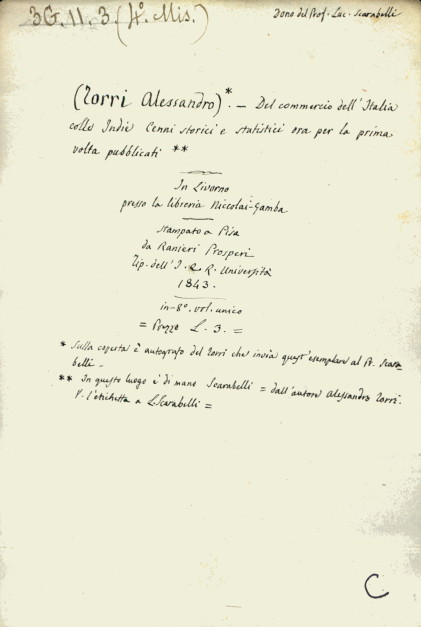 3G. 11. 3 (4°. Mis.)
Dono del Prof. Luc. Scarabelli
(Torri Alessandro)*. — Del commercio dell'Italia
colle Indie Cenni storici e statistici ora per la prima
volta pubblicati **
In Livorno
presso la libreria Niccolai-Gamba
stampato a Pisa
da Ranieri Prosperi
Tip. dell' I. e R. Università
1843.
in-8°. vol. unico
= Prezzo L. 3. =
* Sulla coperta è autografo del Torri che invia quest'esemplare al Pr. Scara=
belli. —
** In questo luogo è di mano Scarabelli = dall'autore Alessandro Torri.
V. l'etichetta a L. Scarabelli =
C